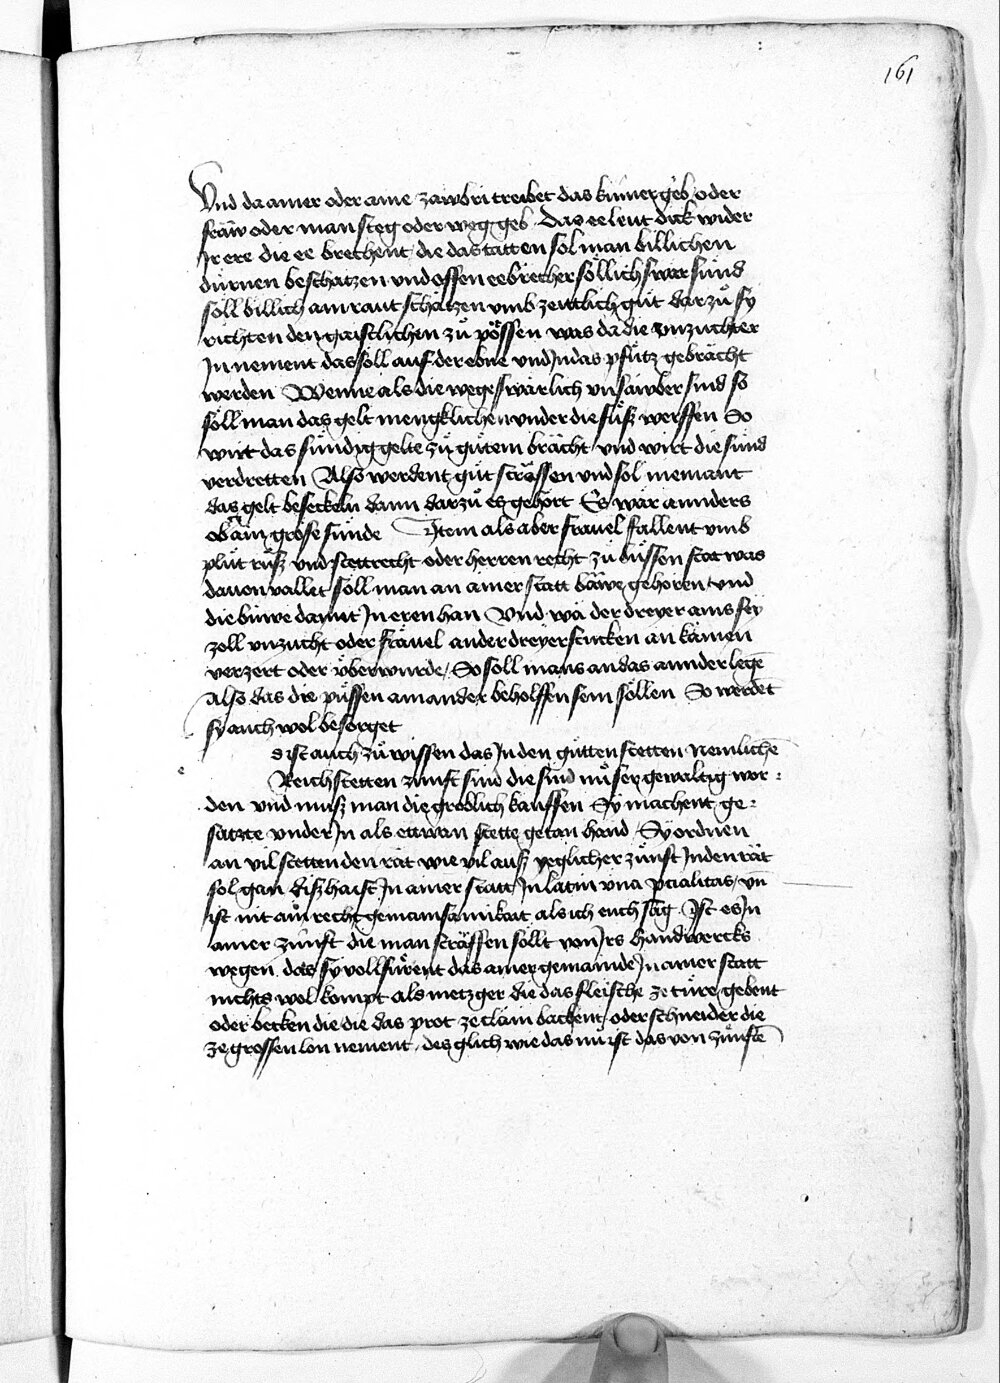 161
Vnd da ainer oder aine zawbri treibet das kinnergeb oder
fraw oder man steg oder weg geb Das eeleut dick wider
Ir ere die ee brechent die das tatten sol man billichen
dürnen beschatzen vnd offen eebrecher söllich swär sünd
söll billich ain raut schätzen vmb zeittlich gůt darzů sy
richten den gaistlichen zů pössen was da die vnzüchter
In nement das söll auf der ebne vnd In das pfütz gebrächt
werden Wenne als die wege swärlich vnsawber sind so
söll man das gelt mengklichen vnder die füß werffen So
wirt das sündig gelte zů gůtem brächt vnd wirt die sünd
verdretten Also werdent gůt strässen vnd sol niemant
das gelt beseckeln dann darzů es gehört Es wär annders
ob ain größe sünde Item als aber fräuel fallent vmb
plůt růß vnd stettrecht oder herren recht zů büssen stet was
dauon vallet söll man an ainer statt bäwe gehören vnd
die büwe damit In eren han Vnd wä der dreyer ains sey
zoll vnzucht oder fräuel ander dreyer stucken an kämen
verzert oder v̊berwurde So soll mans an das annder legē
Also das die püssen ainander beholffen sein söllen So werdēt
sy auch wol besorget
e
s ist auch zů wissen das In den gůtten stetten Nemlichē
Reichstetten zünft sind die sind nu̇ ser gewaltig wor:
den vnd muß man die grödlich kauffen Sy machent ge:
sätzte vnder In als ettwan stette getan hand Sy ordnen
an vil stetten den rät wie vil auß yeglicher zünft In den rät
sol gan dißhaist In ainer statt In latin vna pcialitas vn̄
ist nit ain recht gemainsamikait als ich euch sag Ist es In
ainer zünft die man sträffen söllt von Irs handwercks
wegen das sy vollfürent das ainer gemainde In ainer statt
nichts wol kompt als metzger die das fleische ze türe gebent
oder becken die die das prot ze clain bachent oder schneider die
ze grossen lon nement des glich wie das nu̇ ist das von zünftē